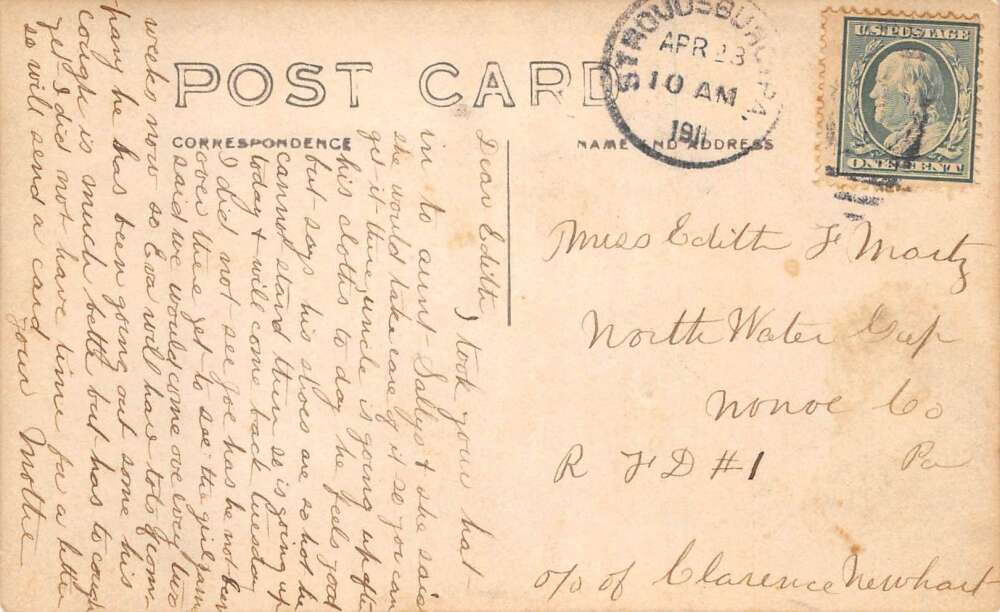 POST CARD
CORRESPONDENCE
NAME AND ADDRESS
STROUDSBURG, PA.
APR 23
10 AM
1911
U.S. POSTAGE
ONE CENT
Dear Edith, I took your hat
in to aunt Sallys & she said
she would take care of it so you can
get it there, uncle is going up after
his cloths to day he feels good
but says his shoes are so hot he
cannot stand them so is going up
today & will come back Tuesday
I did not see Joe has he not been
over there yet to see the girls, ama
said we would come ove every two
weeks now so Eva will have lots of com-
pany he has been going out some his
cough is much bette but has to cough
yet I did not have time for a letter
so will send a card your Mother
Miss Edith F Martz
North Water Gap
Monoe Co
R F D #1 Pa
o/o of Clarence Newhart